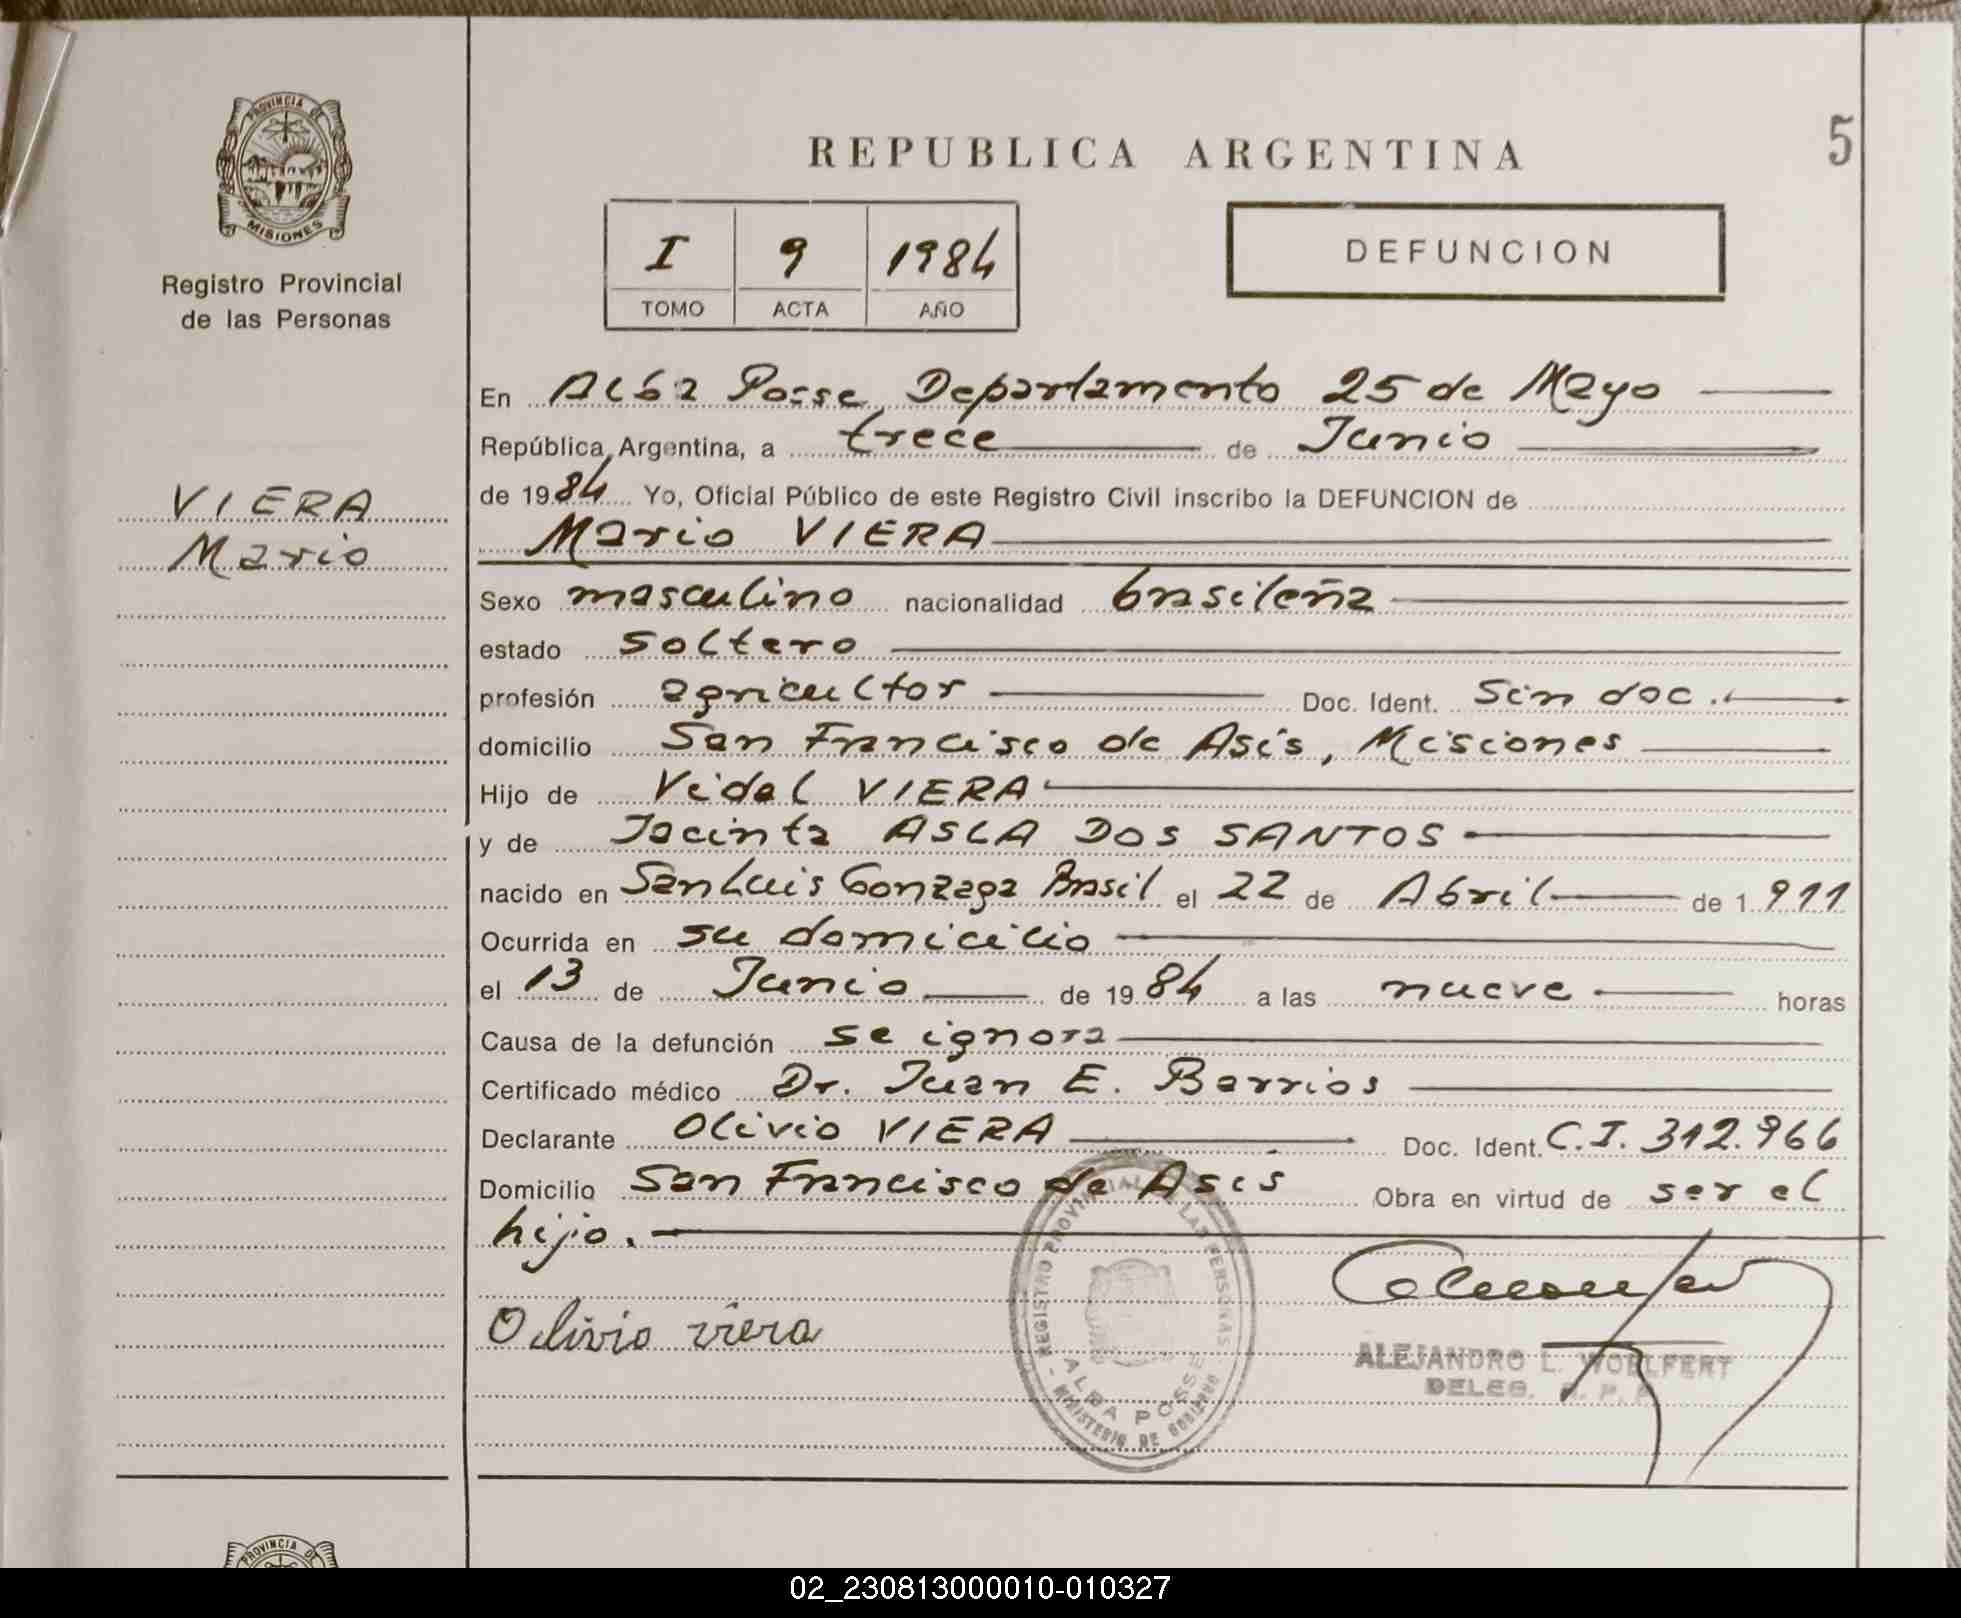 PROVINCIA DE
MISIONES
Registro Provincial
de las Personas
VIERA
Mario
REPUBLICA ARGENTINA
5
I 9 1984
TOMO ACTA AÑO
DEFUNCION
En Alba Posse, Departamento 25 de Mayo
República Argentina, a trece de Junio
de 1984 Yo, Oficial Público de este Registro Civil inscribo la DEFUNCION de
Mario VIERA
Sexo masculino nacionalidad brasileña
estado soltero
profesión agricultor Doc. Ident. Sin doc.
domicilio San Francisco de Asís, Misiones
Hijo de Vidal VIERA
y de Jacinta ASLA DOS SANTOS
nacido en San Luis Gonzaga Brasil el 22 de Abril de 1911
Ocurrida en su domicilio
el 13 de Junio de 1984 a las nueve horas
Causa de la defunción se ignora
Certificado médico Dr. Juan E. Barrios
Declarante Olivio VIERA Doc. Ident. C.I. 312.966
Domicilio San Francisco de Asís Obra en virtud de ser el
hijo.
Olivio viera
REGISTRO PROVINCIAL DE LAS PERSONAS
ALBA POSSE
MINISTERIO DE GOBIERNO
ALEJANDRO L. WOELFERT
DELEG. R. P. P.
PROVINCIA DE
02_230813000010-010327